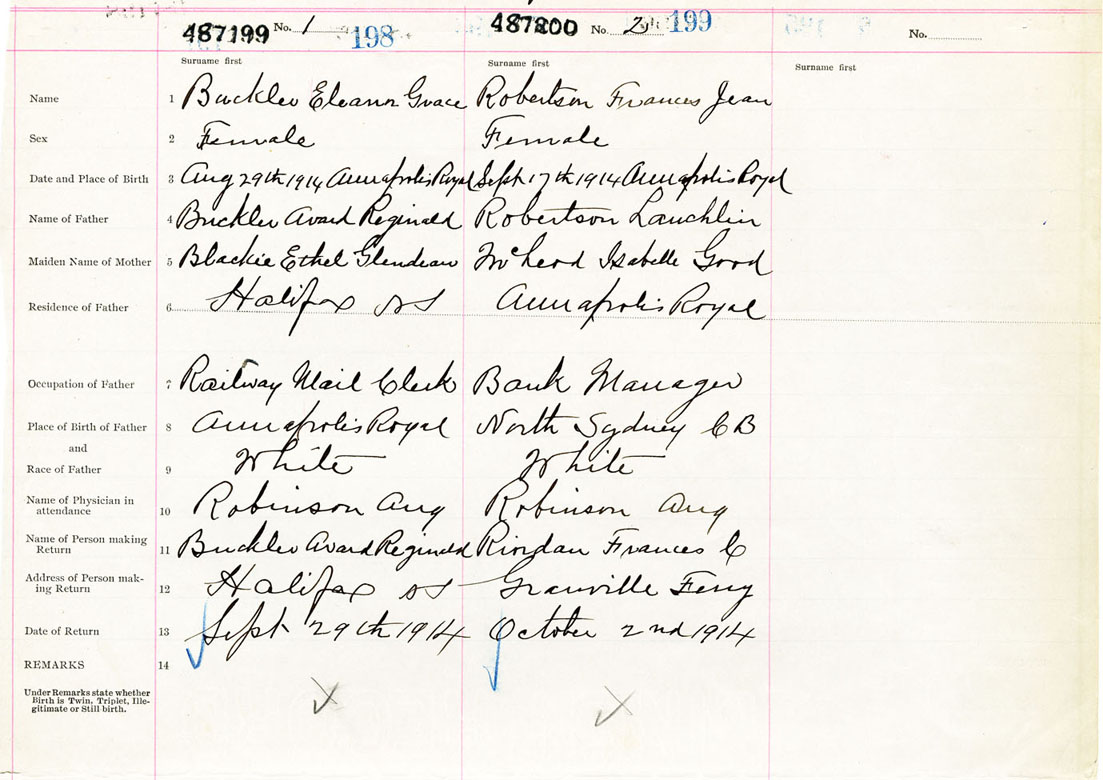 487199 No. 1 198 487200 No. 2 199 No.
Surname first Surname first Surname first
Name 1 Buckler Eleanor Grace Robertson Frances Jean
Sex 2 Female Female
Date and Place of Birth 3 Aug 29th 1914 Annapolis Royal Sept 17th 1914 Annapolis Royal
Name of Father 4 Buckler Avard Reginald Robertson Lauchlin
Maiden Name of Mother 5 Blackie Ethel Glendean McLeod Isabelle Good
Residence of Father 6 Halifax NS Annapolis Royal
Occupation of Father 7 Railway Mail Clerk Bank Manager
Place of Birth of Father 8 Annapolis Royal North Sydney C B
and
Race of Father 9 White White
Name of Physician in
attendance 10 Robinson Aug Robinson Aug
Name of Person making
Return 11 Buckler Avard Reginald Riordan Frances C
Address of Person mak-
ing Return 12 Halifax NS Granville Ferry
Date of Return 13 Sept 29th 1914 October 2nd 1914
REMARKS 14
Under Remarks state whether
Birth is Twin, Triplet, Ille-
gitimate or Still birth.